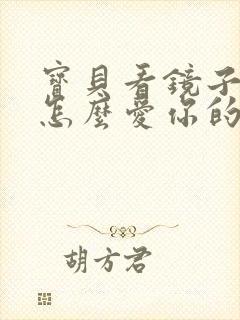 寶貝看鏡子
怎麼愛你的
胡方君